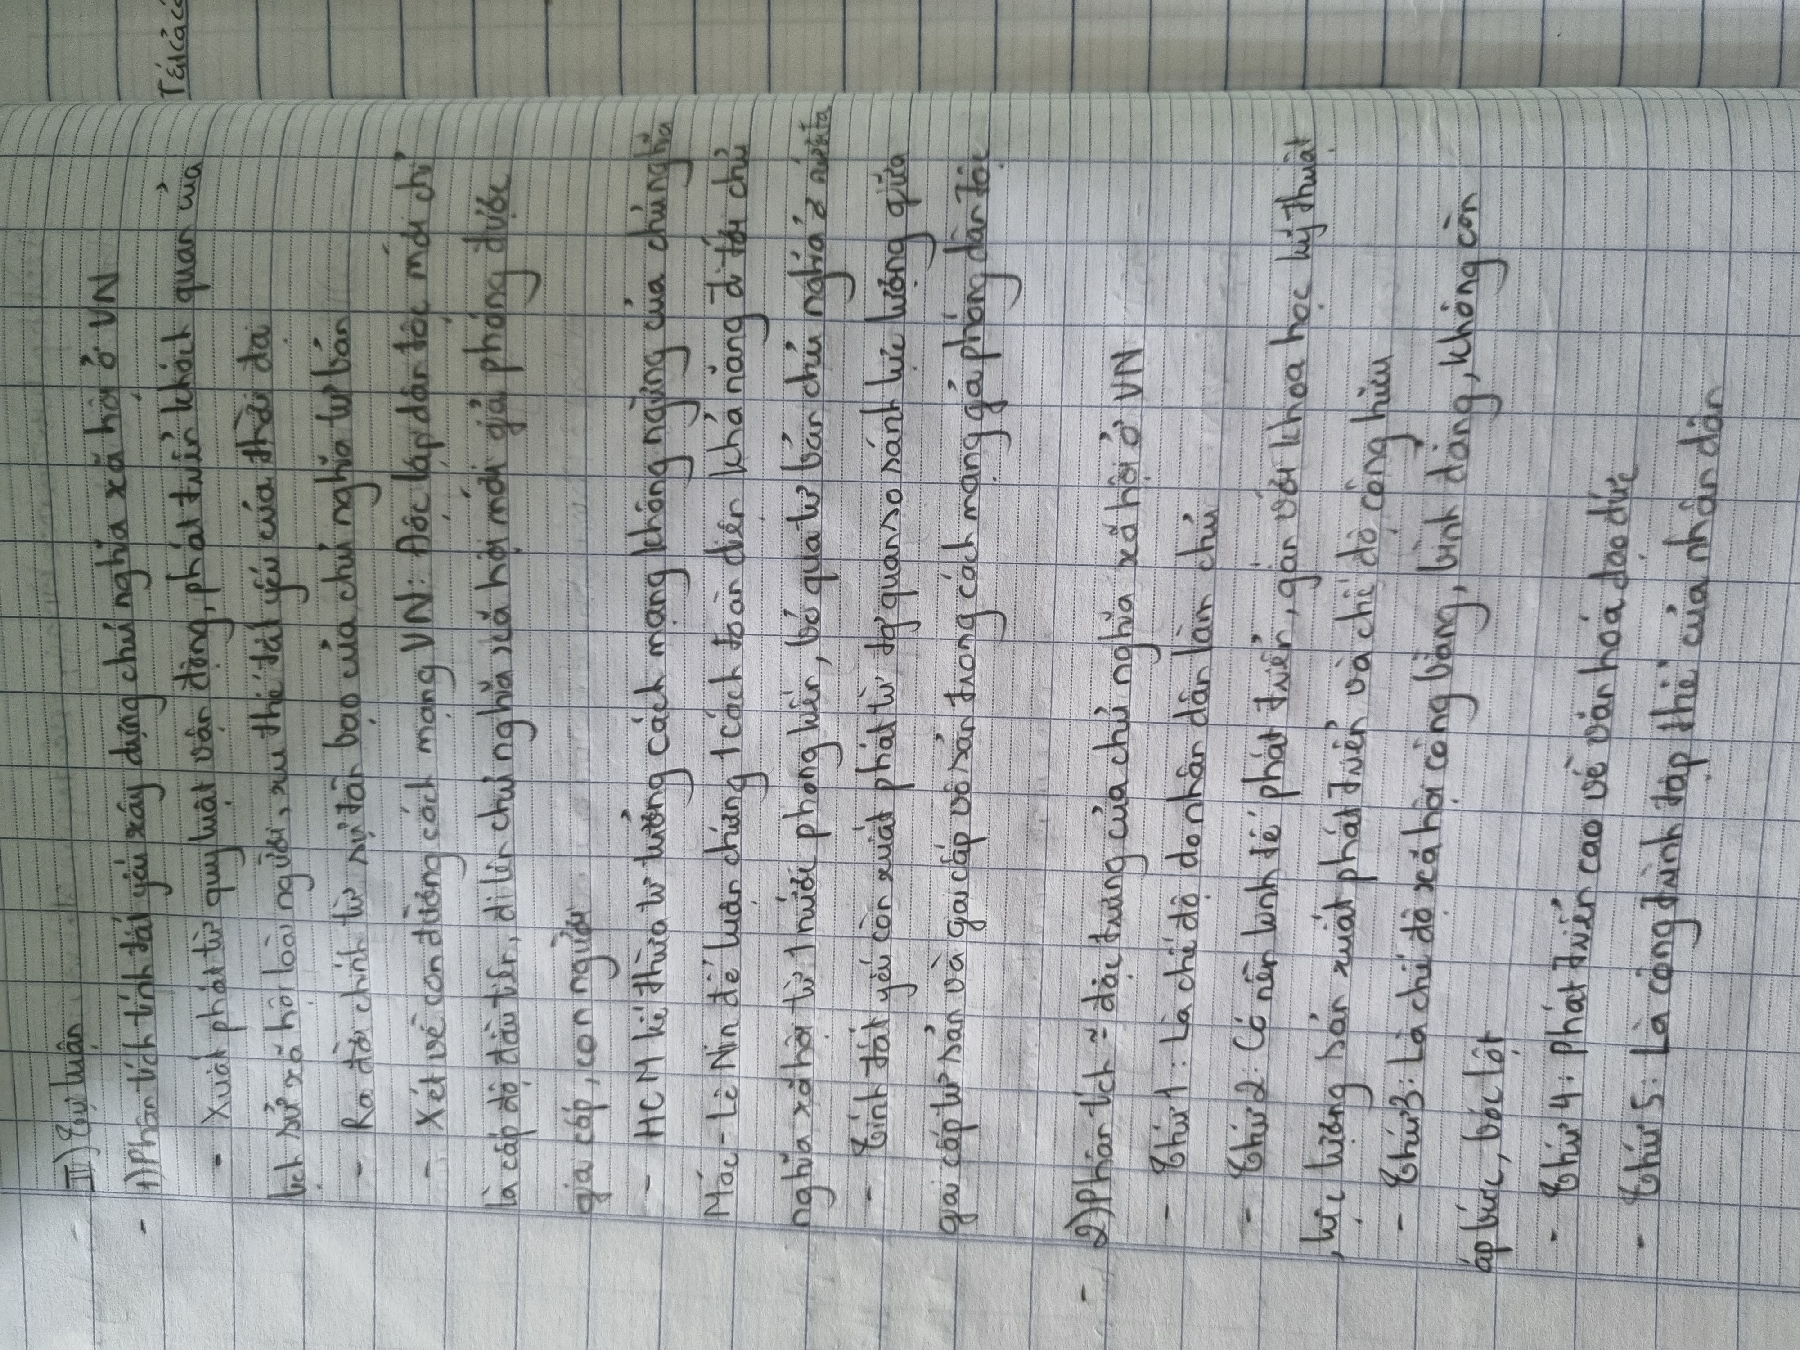 II) Tự luận
- 1) Phân tích tính tất yếu xây dựng chủ nghĩa xã hội ở VN
- Xuất phát từ quy luật vận động, phát triển khách quan của
lịch sử xã hội loài người, xu thế tất yếu của thời đại
- Ra đời chính từ sự tàn bạo của chủ nghĩa tư bản
- Xét về con đường cách mạng VN: Độc lập dân tộc mới chỉ
là cấp độ đầu tiên, đi lên chủ nghĩa xã hội mới giải phóng được
giai cấp, con người
- HCM kế thừa tư tưởng cách mạng không ngừng của chủ nghĩa
Mác - Lê Nin để luận chứng 1 cách toàn diện khả năng đi tới chủ
nghĩa xã hội từ 1 nước phong kiến, bỏ qua tư bản chủ nghĩa ở nước ta
- Tính tất yếu còn xuất phát từ tg quan so sánh lực lượng giữa
giai cấp tư sản và giai cấp vô sản trong cách mạng giải phóng dân tộc
- 2) Phân tích ~ đặc trưng của chủ nghĩa xã hội ở VN
- Thứ 1: Là chế độ do nhân dân làm chủ
- Thứ 2: Có nền kinh tế phát triển, gắn với khoa học kỹ thuật
, lực lượng sản xuất phát triển và chế độ công hữu
- Thứ 3: Là chế độ xã hội công bằng, bình đẳng, không còn
áp bức, bóc lột
- Thứ 4: Phát triển cao về văn hoá đạo đức
- Thứ 5: Là công trình tập thể của nhân dân